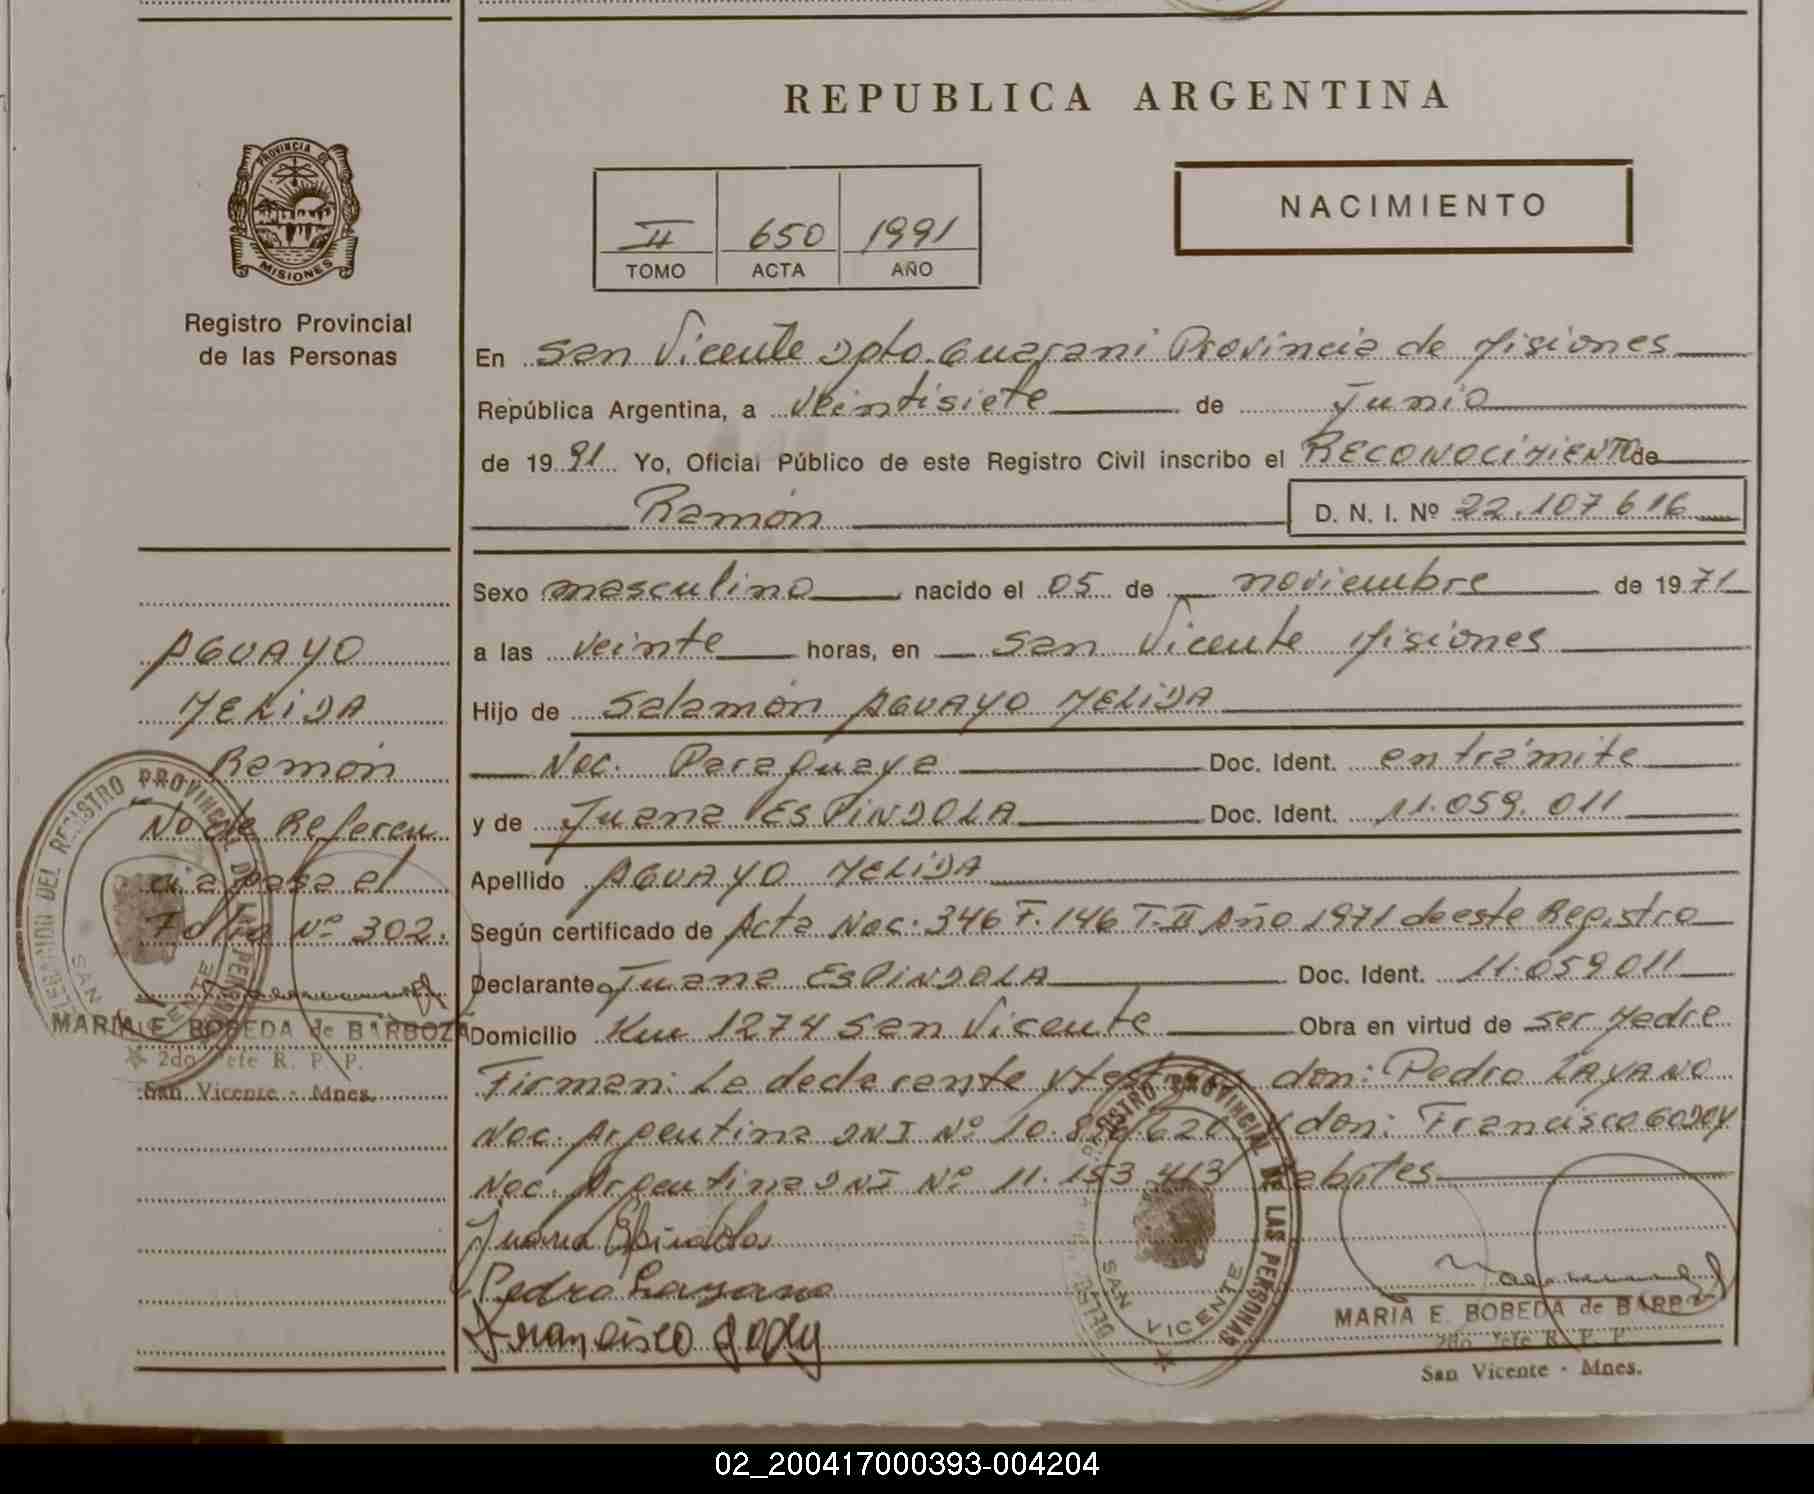 REPUBLICA ARGENTINA
PROVINCIA DE
MISIONES
Registro Provincial
de las Personas
II 650 1991
TOMO ACTA AÑO
NACIMIENTO
En San Vicente Dpto. Guarani Provincia de Misiones
República Argentina, a Veintisiete de Junio
de 1991 Yo, Oficial Público de este Registro Civil inscribo el RECONOCIMIENTO de
Ramón D. N. I. Nº 22.107616
Sexo masculino nacido el 05 de noviembre de 1971
a las veinte horas, en San Vicente Misiones
Hijo de Salamón AGUAYO MELIDA
Nac. Paraguaya Doc. Ident. en trámite
y de Juana ESPINDOLA Doc. Ident. 11.059.011
Apellido AGUAYO MELIDA
Según certificado de Acta Nac. 346 F. 146 T-II Año 1971 de este Registro
Declarante Juana ESPINDOLA Doc. Ident. 11.059011
Domicilio Km 1274 San Vicente Obra en virtud de ser Madre
Firman: La declarante y don: Pedro LAYANO
Nac. Argentina DNI Nº 10. y don: Francisco GODOY
Nac. Argentina DNI Nº 11.153.413
Juana Espindola
Pedro Layano
Francisco Godoy
AGUAYO
MELIDA
Ramón
Nota de Referen
cia pasa al
Folio Nº 302.
MARIA E. BOBEDA de BARBOZA
2do Jefe R. P. P.
San Vicente - Mnes.
DELEGACION DEL REGISTRO PROVINCIAL DE LAS PERSONAS
SAN VICENTE
DEL REGISTRO PROVINCIAL DE LAS PERSONAS
SAN VICENTE
MARIA E. BOBEDA de BARBOZA
2do Jefe R. P. P.
San Vicente - Mnes.
02_200417000393-004204